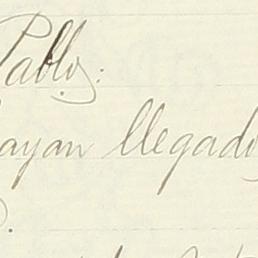 Pablo:
ayan llegado